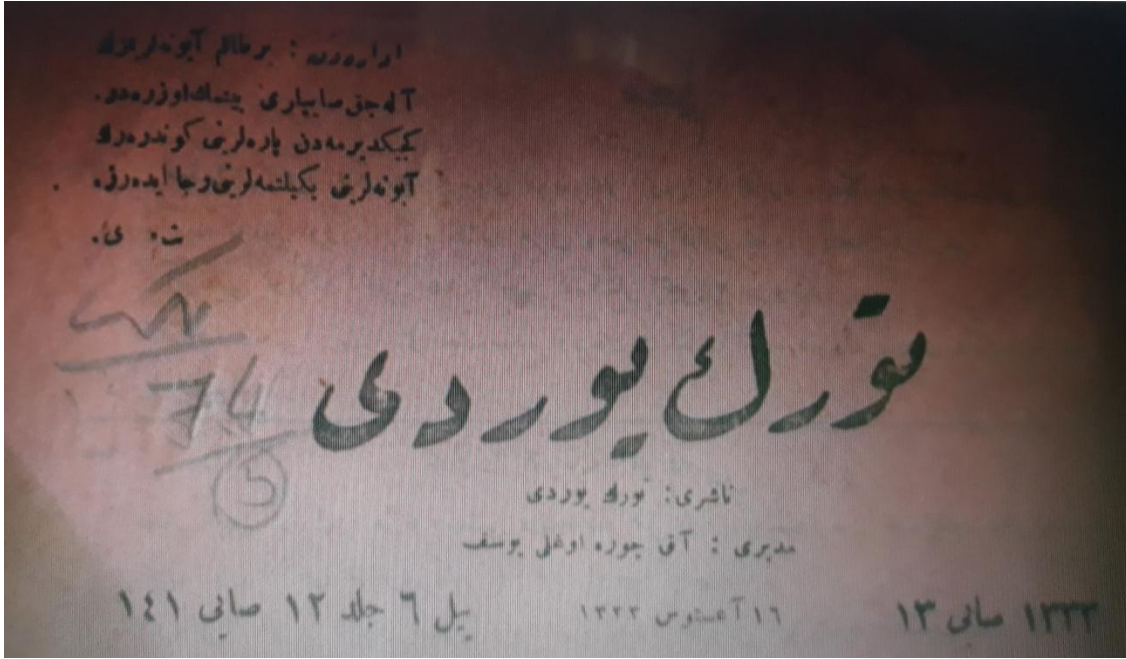 اداره‌دن : بر طاقم آبونه‌لرمزك
آله‌جق صاییلری بیتمك اوزره‌در.
كیكدیرمه‌دن پاره‌لرینی كوندره‌رك
آبونه‌لرینی یكیلتمه‌لرینی رجا ایده‌رز.
ت. ی.
74
5
تورك یوردی
ناشری: تورك یوردی
مدیری : آق چوره اوغلی یوسف
١٣٣٣ صایی ١٣
١٦ آغستوس ١٣٣٣
ییل ٦ جلد ١٢ صایی ١٤١